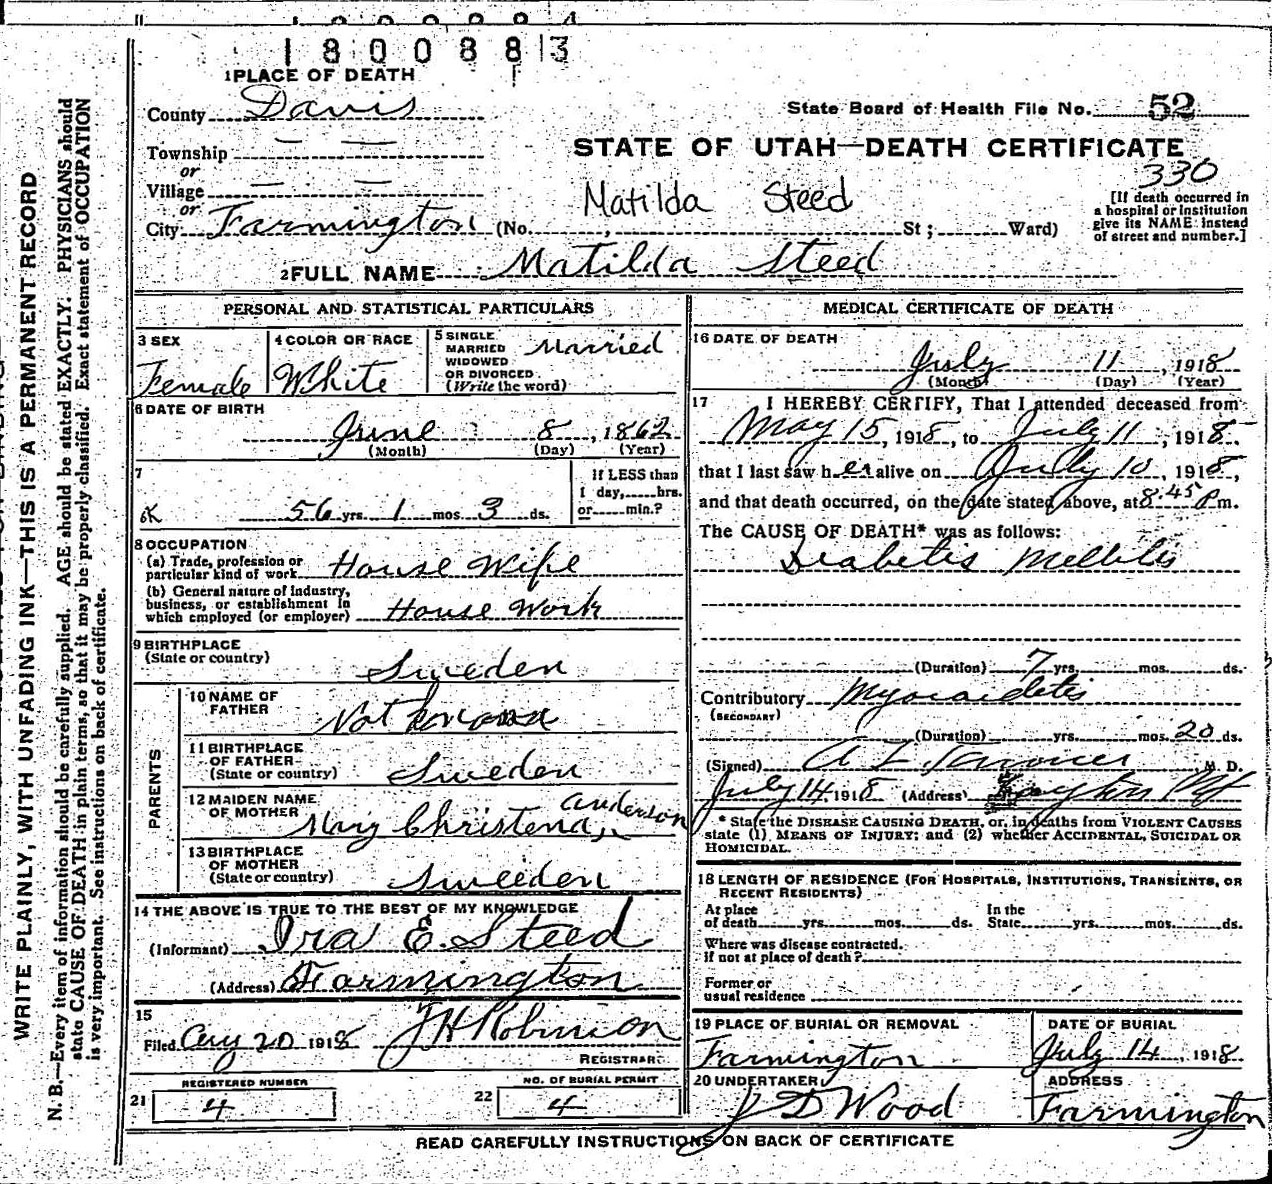 1800883
1 PLACE OF DEATH
County Davis
State Board of Health File No. 52
Township — —
or
STATE OF UTAH—DEATH CERTIFICATE
330
Village — —
or
Matilda Steed
[If death occurred in
a hospital or institution
give its NAME instead
of street and number.]
City Farmington (No. , St ; Ward)
2 FULL NAME Matilda Steed
PERSONAL AND STATISTICAL PARTICULARS
3 SEX
Female
4 COLOR OR RACE
White
5 SINGLE
MARRIED
WIDOWED
OR DIVORCED
(Write the word)
Married
6 DATE OF BIRTH
June 8, 1862
(Month) (Day) (Year)
7
56 yrs. 1 mos. 3 ds.
If LESS than
1 day, hrs.
or min.?
8 OCCUPATION
(a) Trade, profession or
particular kind of work House Wife
(b) General nature of industry,
business, or establishment in
which employed (or employer) House Work
9 BIRTHPLACE
(State or country)
Sweden
PARENTS
10 NAME OF
FATHER
Not known
11 BIRTHPLACE
OF FATHER
(State or country)
Sweden
12 MAIDEN NAME
OF MOTHER
Mary Christena Anderson
13 BIRTHPLACE
OF MOTHER
(State or country)
Sweeden
14 THE ABOVE IS TRUE TO THE BEST OF MY KNOWLEDGE
(Informant) Ira E. Steed
(Address) Farmington
15
Filed Aug 20 1918 J H Robinson
REGISTRAR
REGISTERED NUMBER
21 4
NO. OF BURIAL PERMIT
22 4
MEDICAL CERTIFICATE OF DEATH
16 DATE OF DEATH
July 11, 1918
(Month) (Day) (Year)
17 I HEREBY CERTIFY, That I attended deceased from
May 15, 1918, to July 11, 1918.
that I last saw her alive on July 10, 1918,
and that death occurred, on the date stated above, at 8:45 P m.
The CAUSE OF DEATH* was as follows:
Diabetis Mellitis
(Duration) 7 yrs. mos. ds.
Contributory Myocardetis
(SECONDARY)
(Duration) yrs. mos. 20 ds.
(Signed) A L , M. D.
July 14 1918 (Address) Layton
* State the DISEASE CAUSING DEATH, or, in deaths from VIOLENT CAUSES
state (1) MEANS OF INJURY; and (2) whether ACCIDENTAL, SUICIDAL OR
HOMICIDAL.
18 LENGTH OF RESIDENCE (FOR HOSPITALS, INSTITUTIONS, TRANSIENTS, OR
RECENT RESIDENTS)
At place
of death yrs. mos. ds.
In the
State yrs. mos. ds.
Where was disease contracted.
if not at place of death?
Former or
usual residence
19 PLACE OF BURIAL OR REMOVAL
Farmington
DATE OF BURIAL
July 14, 1918
20 UNDERTAKER
J D Wood
ADDRESS
Farmington
READ CAREFULLY INSTRUCTIONS ON BACK OF CERTIFICATE
WRITE PLAINLY, WITH UNFADING INK—THIS IS A PERMANENT RECORD
N. B.—Every item of information should be carefully supplied. AGE should be stated EXACTLY. PHYSICIANS should
state CAUSE OF DEATH in plain terms, so that it may be properly classified. Exact statement of OCCUPATION
is very important. See instructions on back of certificate.